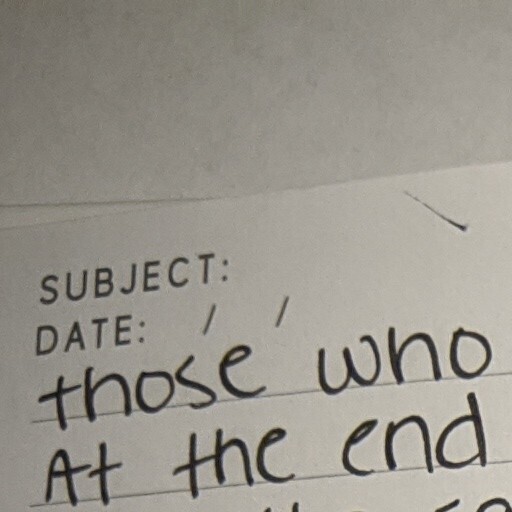 SUBJECT:
DATE: / /
those who
At the end